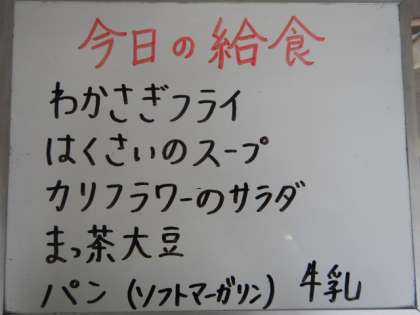 今日の給食
わかさぎフライ
はくさいのスープ
カリフラワーのサラダ
まっ茶大豆
パン (ソフトマーガリン) 牛乳